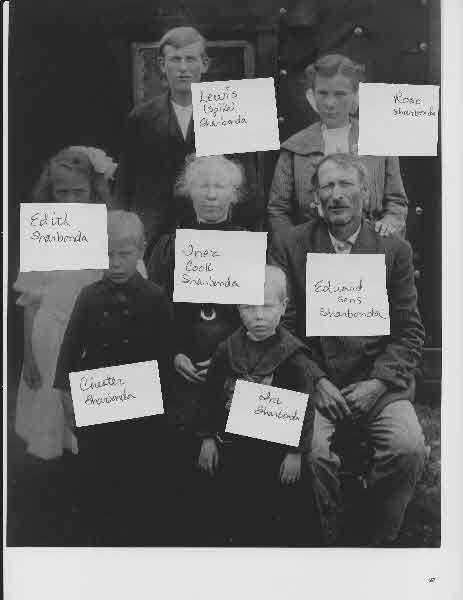 Lewis
(Spike)
Sharbonda
Rose
Sharbonda
Edith
Sharbonda
Inez
Cook
Sharbonda
Edward
Sharbonda
Chester
Sharbonda
Ira
Sharbonda